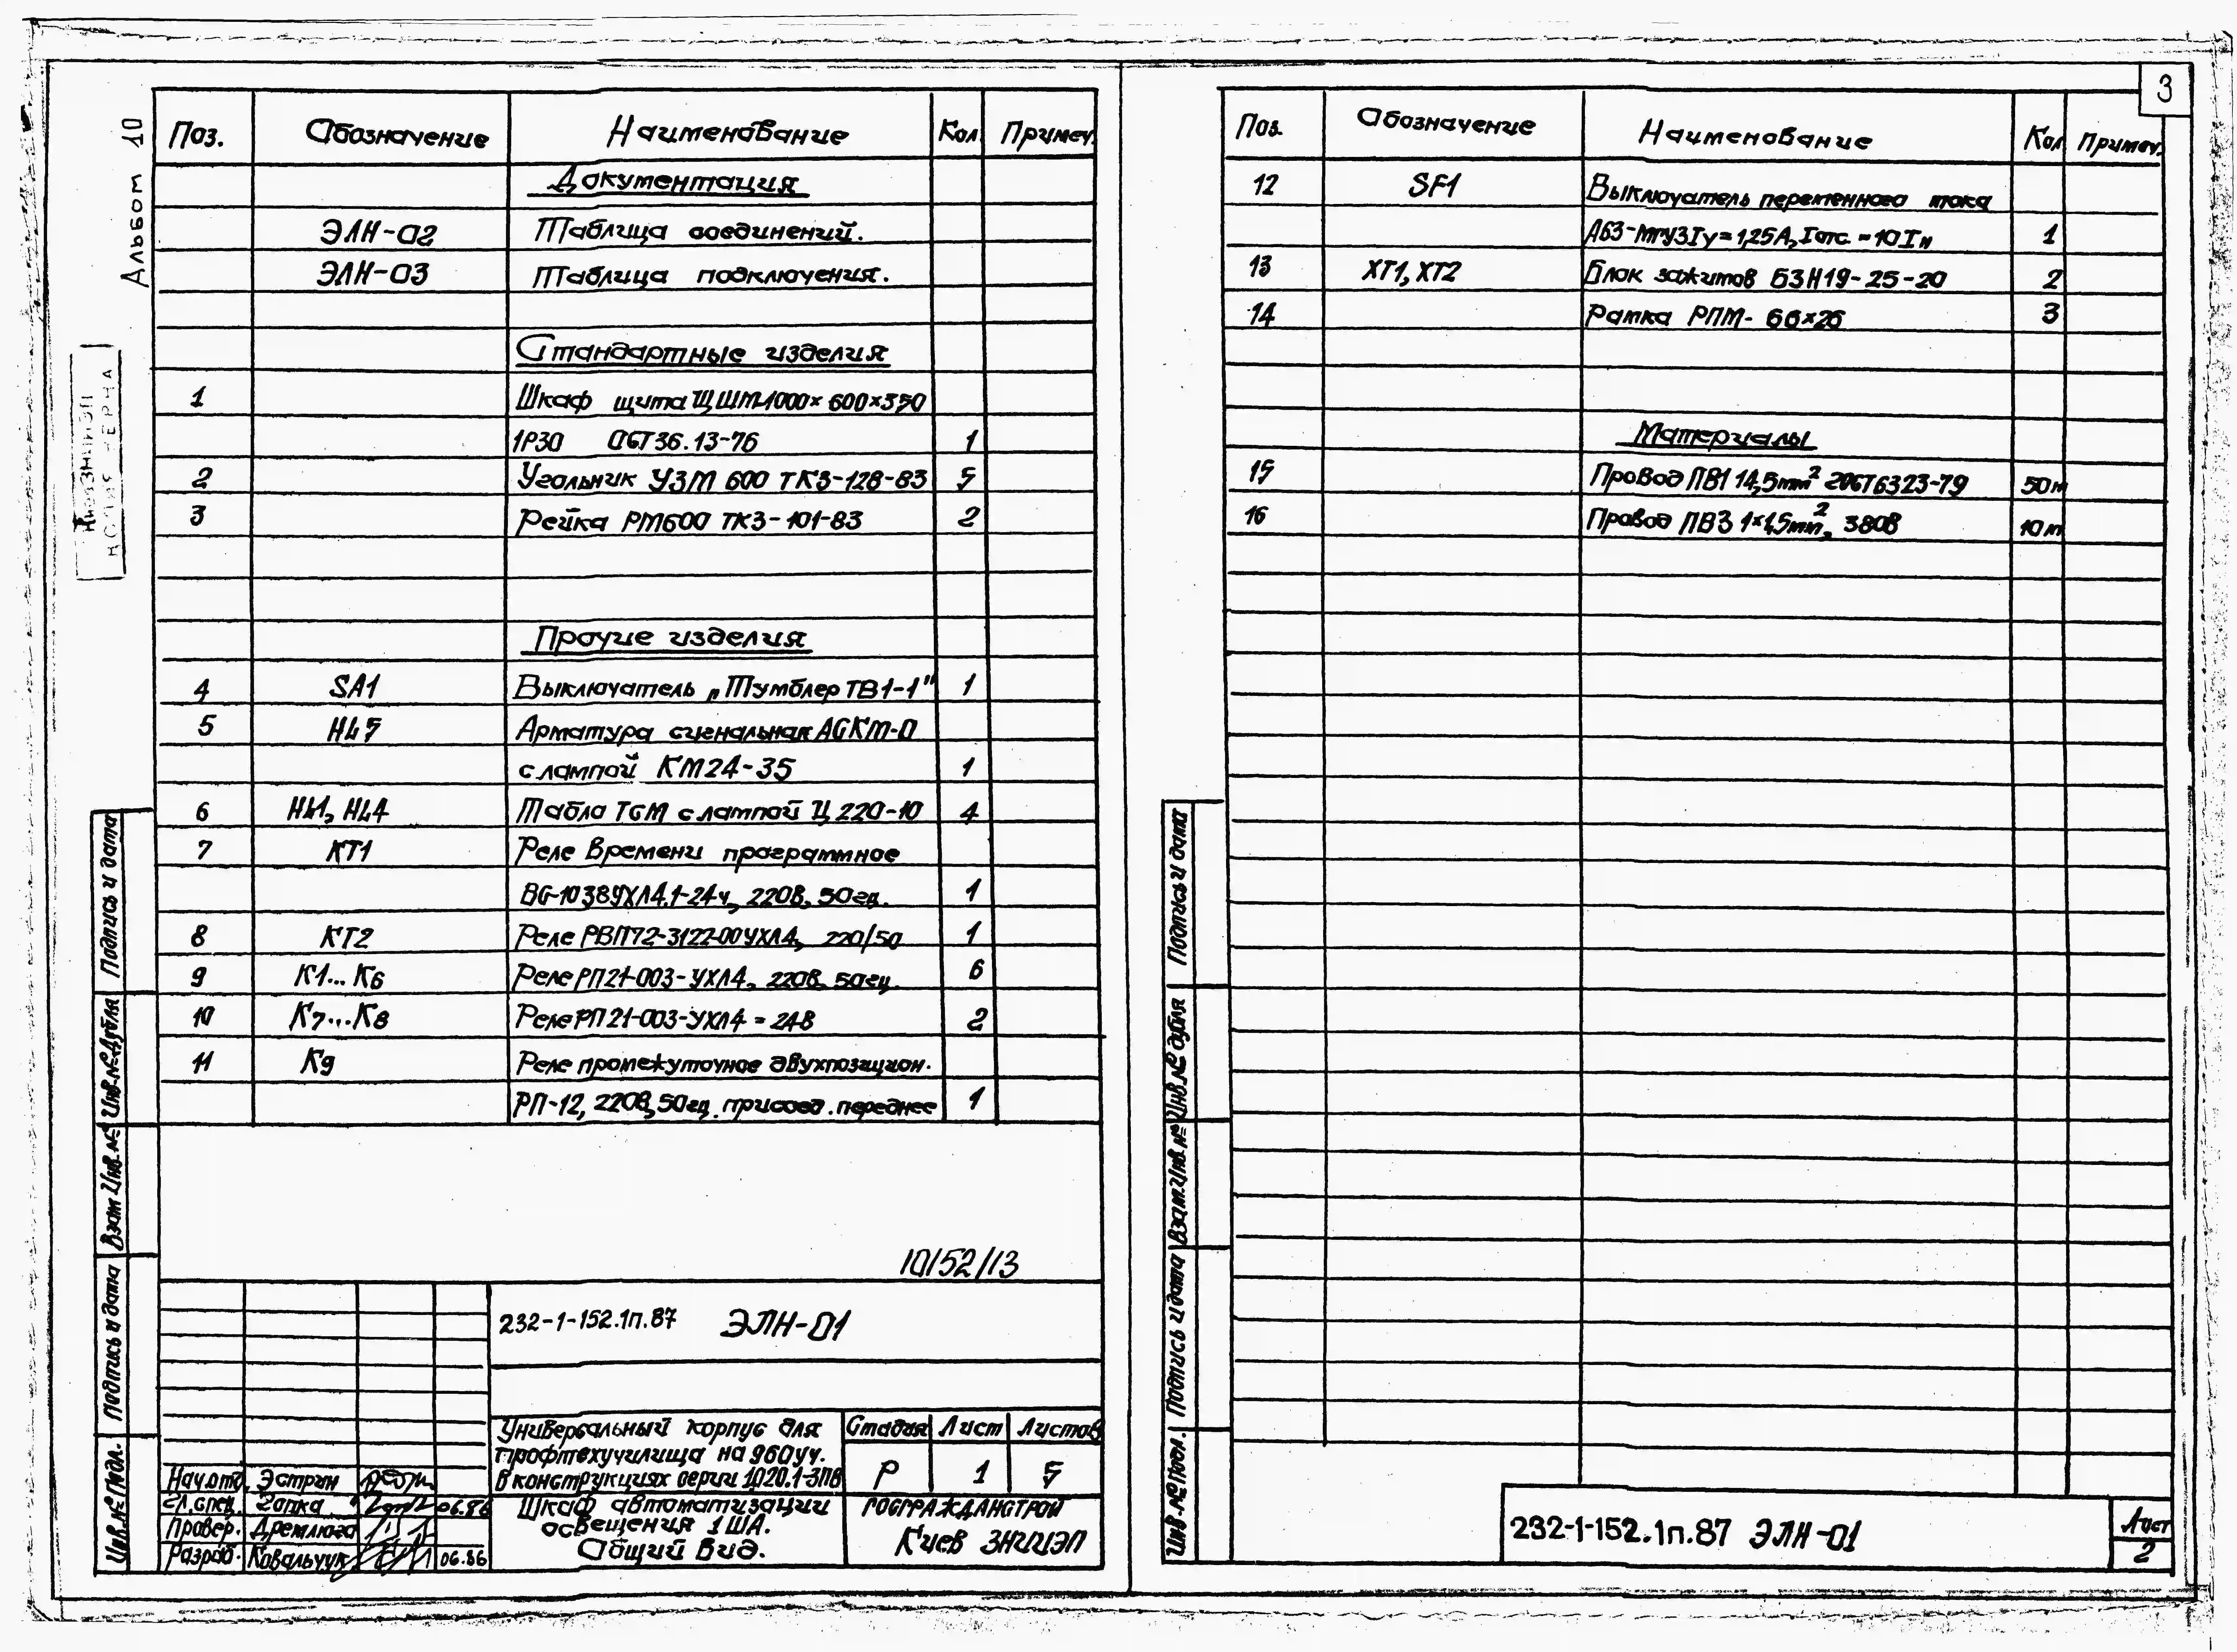 3
Альбом 10
Поз. Обозначение Наименование Кол. Примеч.
Документация
ЭЛН-02 Таблица соединений.
ЭЛН-03 Таблица подключения.
Стандартные изделия
1 Шкаф щита ЩШМ-1000×600×350
1Р30 ОСТ36.13-76 1
2 Угольник УЗМ 600 ТК3-128-83 5
3 Рейка РМ600 ТК3-101-83 2
Прочие изделия
4 SA1 Выключатель „Тумблер ТВ1-1" 1
5 HL5 Арматура сигнальная АСКМ-О
с лампой КМ24-35 1
6 HL1, HL4 Табло ТСМ с лампой Ц 220-10 4
7 КТ1 Реле времени программное
ВС-10 38УХЛ4.1-24ч, 220В, 50гц. 1
8 КТ2 Реле РВП72-3122-00УХЛ4, 220/50 1
9 К1...К6 Реле РП21-003-УХЛ4, 220В, 50гц. 6
10 К7...К8 Реле РП21-003-УХЛ4 = 24В 2
11 К9 Реле промежуточное двухпозицион.
РП-12, 220В, 50гц присоед. переднее 1
10152/13
232-1-152.1п.87 ЭЛН-01
Универсальный корпус для
профтехучилища на 960уч.
в конструкциях серии 1.020.1-3ПВ
Стадия Лист Листов
Р 1 5
Шкаф автоматизации
освещения 1ША.
Общий вид.
ГОСГРАЖДАНСТРОЙ
Киев ЗНИИЭП
Нач.отд. Эстрин
Гл.спец. 06.86
Провер. Дремлюга
Разраб. Ковальчук 06.86
Подпись и дата
Инв.№ дубля
Взам.Инв.№
Подпись и дата
Инв.№ подл.
Поз. Обозначение Наименование Кол Примеч.
12 SF1 Выключатель переменного тока
А63-МГУЗ Iу=1,25А, Iотс.=10Iн 1
13 ХТ1, ХТ2 Блок зажимов БЗН19-25-20 2
14 Рамка РПМ-66×26 3
Материалы
15 Провод ПВ1 1×1,5мм² ГОСТ6323-79 50м
16 Провод ПВ3 1×1,5мм², 380В 10м
Подпись и дата
Инв.№ дубля
Взам.Инв.№
Подпись и дата
Инв.№ подл.
232-1-152.1п.87 ЭЛН-01
Лист
2